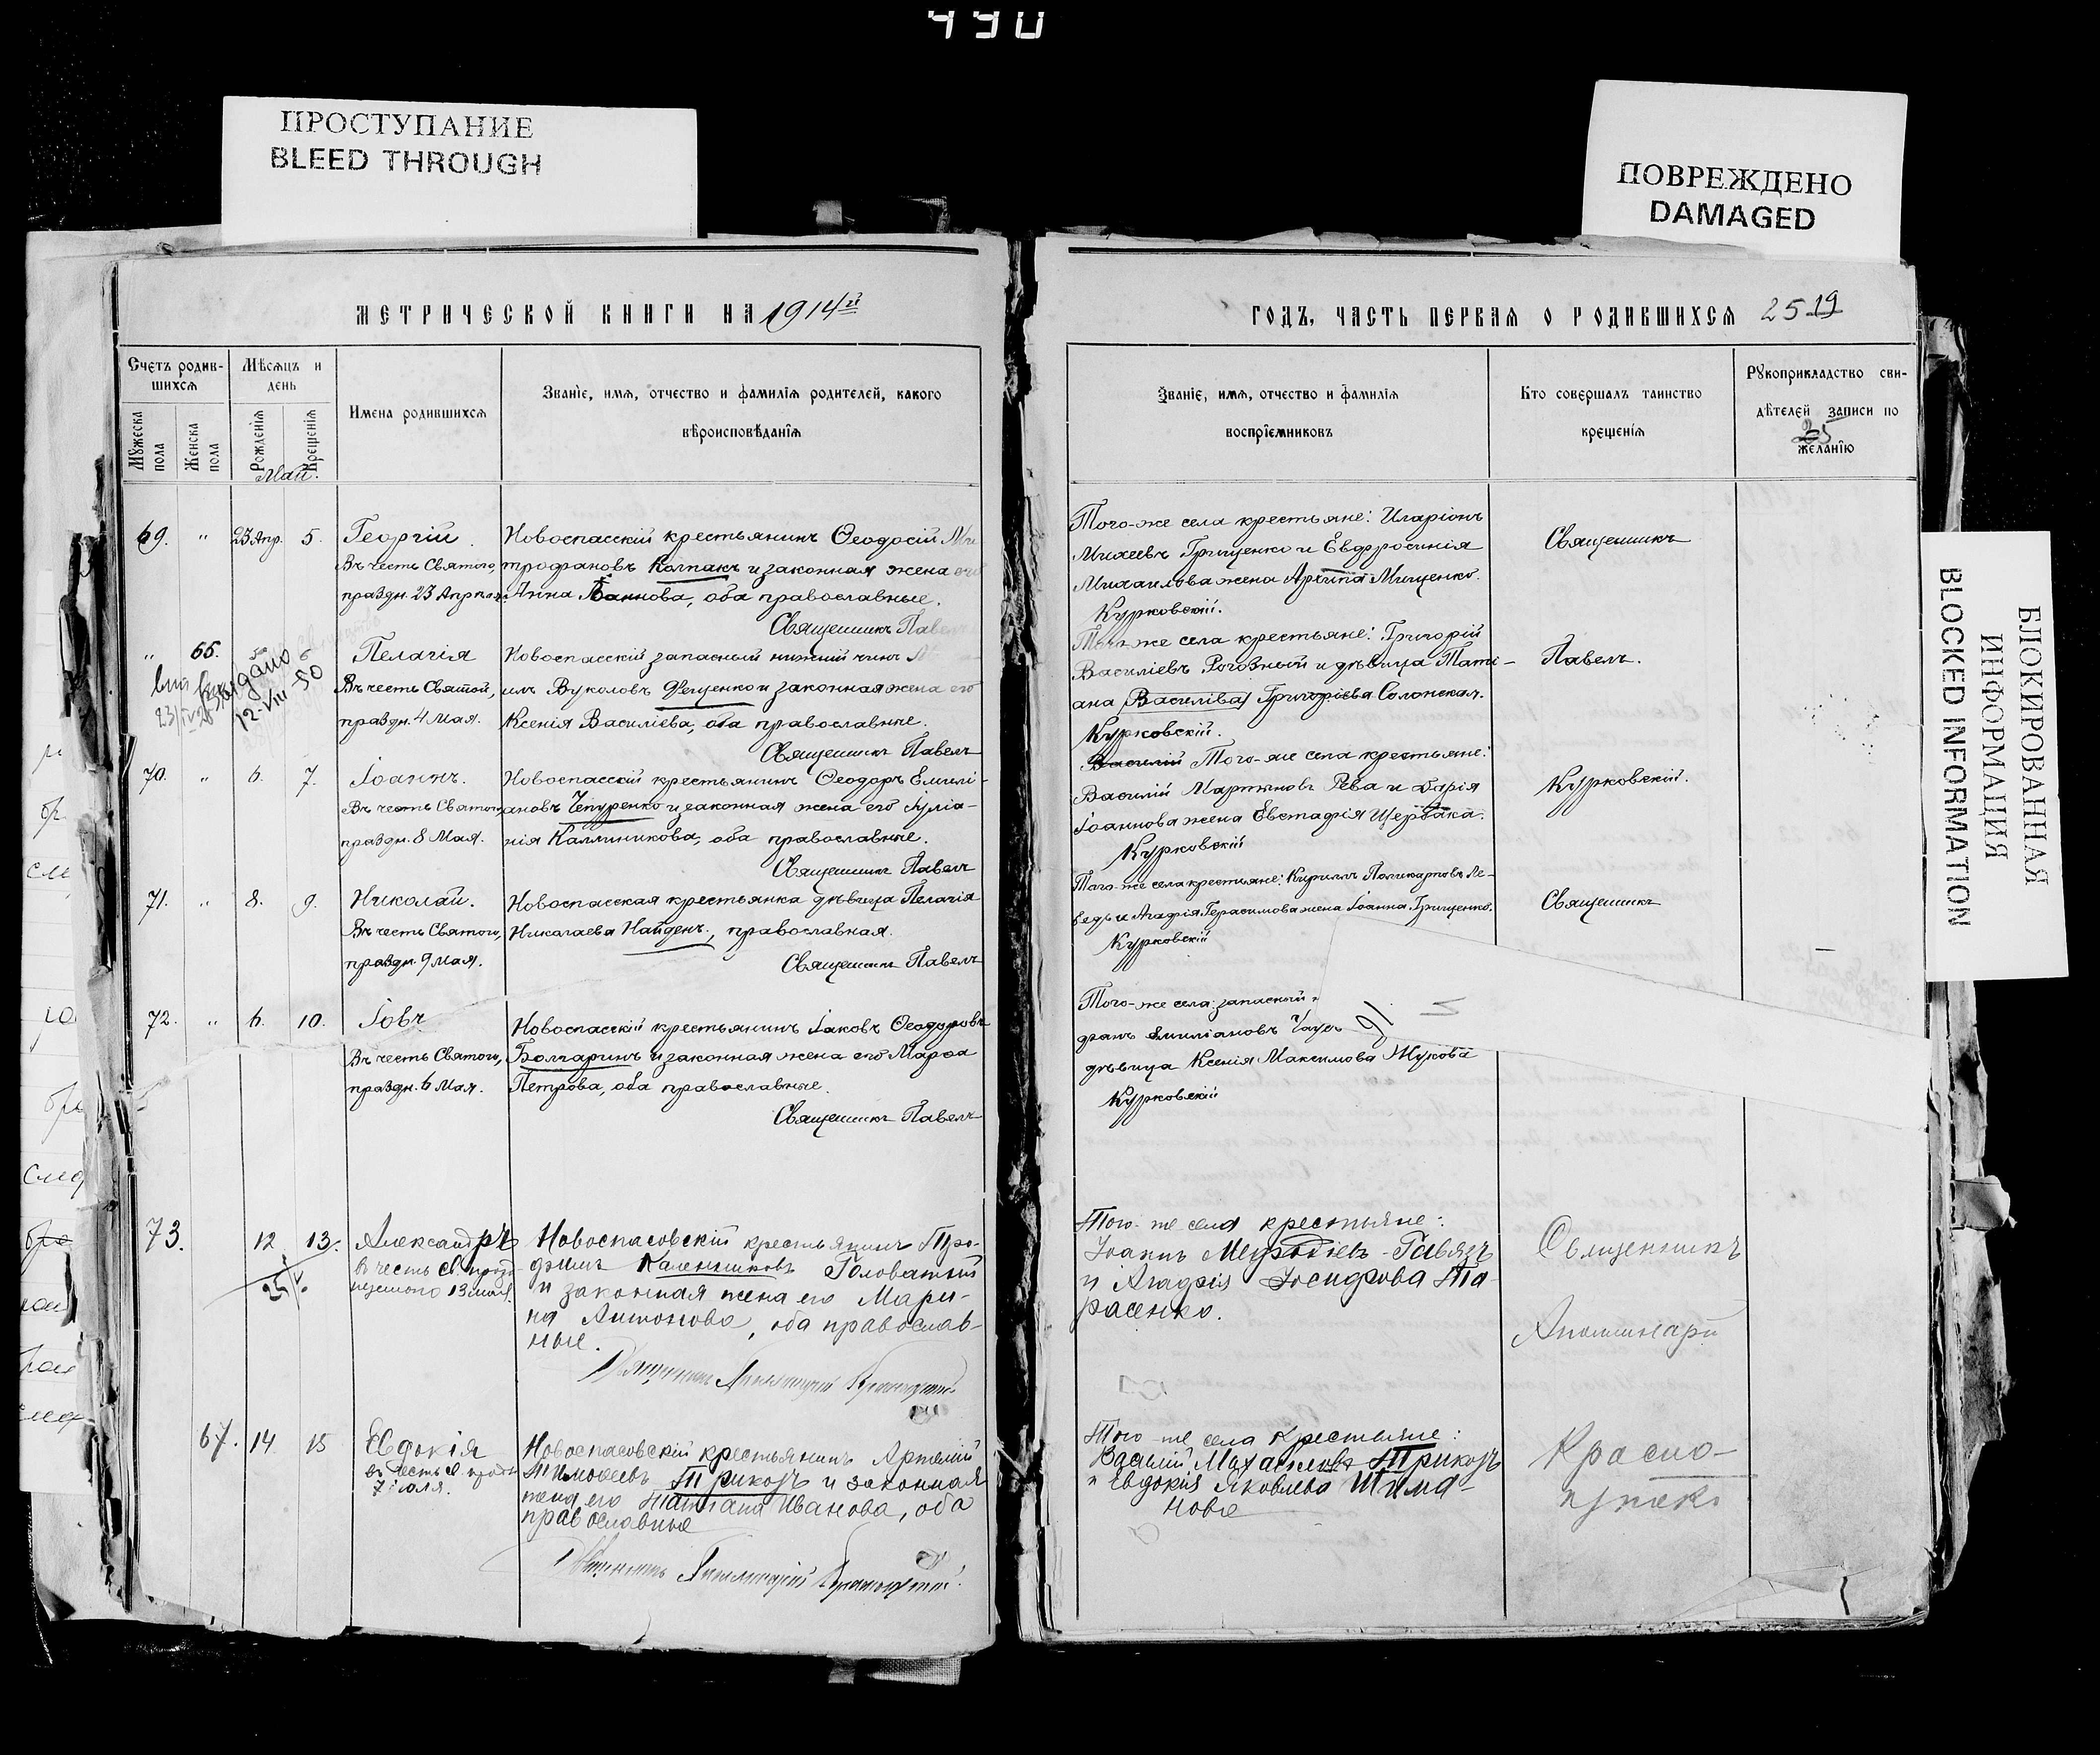 490
ПРОСТУПАНИЕ
BLEED THROUGH
ПОВРЕЖДЕНО
DAMAGED
БЛОКИРОВАННАЯ
ИНФОРМАЦИЯ
BLOCKED INFORMATION
МЕТРИЧЕСКОЙ КНИГИ НА 1914й
Счетъ родив-
шихся
Мѣсяцъ и
день
Имена родившихся
Званіе, имя, отчество и фамилія родителей, какого
вѣроисповѣданія
Мужеска
пола
Женска
пола
Рожденія
Крещенія
Май.
69. " 23 Апр. 5. Георгій. Новоспасскій крестьянинъ Ѳеодосій Ми
Въ честь Святого, трофановъ Колпакъ и законная жена его
праздн. 23 Апрѣля. Анна Іоаннова, оба православные.
Священникъ Павелъ
" 66. Пелагія Новоспасскій запасный нижній чинъ
Въ честь Святой, Вуколовъ Фещенко и законная жена его
праздн. 4 Мая. Ксенія Василіева, оба православные.
Священникъ Павелъ
Выдано
12-VIII-50
70. " 6. 7. Іоаннъ. Новоспасскій крестьянинъ Ѳеодоръ Емилі-
Въ честь Святого, ановъ Чепуренко и законная жена его Іуліа-
праздн. 8 Мая. нія Каллиникова, оба православные.
Священникъ Павелъ
71. " 8. 9. Николай. Новоспасская крестьянка дѣвица Пелагія
Въ честь Святого, Николаева Найденъ, православная.
праздн. 9 Мая.
Священникъ Павелъ
72. " 6. 10. Іовъ Новоспасскій крестьянинъ Іаковъ Ѳеодоровъ
Въ честь Святого, Болгаринъ и законная жена его Марѳа
праздн. 6 Мая. Петрова, оба православные.
Священникъ Павелъ
73. 12 13. Александръ Новоспасовскій крестьянинъ Тро-
въ честь св. фимъ Каленниковъ Головатый
13 мая. и законная жена его Мари-
на Антонова, оба православ-
ные.
Священникъ Аполлинарій
67. 14 15 Евдокія Новоспасовскій крестьянинъ Артемій
въ честь св. Тимоѳеевъ Трикозъ и законная
жена его Татіана Иванова, оба
православные
Священникъ Аполлинарій
ГОДЪ, ЧАСТЬ ПЕРВАЯ О РОДИВШИХСЯ 25 19
Званіе, имя, отчество и фамилія
воспріемниковъ
Кто совершалъ таинство
крещенія
Рукоприкладство сви-
дѣтелей записи по
желанію
25
Того-же села крестьяне: Иларіонъ
Михеевъ Грищенко и Евфросинія Священникъ
Михаилова жена Архипа Мищенко.
Курковскій.
Того-же села крестьяне: Григорій
Василіевъ Роговный и дѣвица Тати- Павелъ.
ана Василіева Григоріева Солонская.
Курковскій.
Василій Того-же села крестьяне:
Василій Мартыновъ Рева и Дарія Курковскій.
Іоаннова жена Евстафія Щербака.
Курковскій
Того-же села крестьяне: Кириллъ Поликарповъ Ле-
бедь и Агафія Герасимова жена Іоанна Грищенко. Священникъ
Курковскій
Того-же села: запасный
Емиліановъ
дѣвица Ксенія Максимова Жукова
Курковскій
91
Того-же села крестьяне:
Іоаннъ Меѳодіевъ Гавязъ Священникъ
и Агафія Іосифова Та-
расенко.
Аполлинарій
Того-же села крестьяне:
Василій Михаиловъ Трикозъ Красно-
и Евдокія Яковлева Шима-
нова